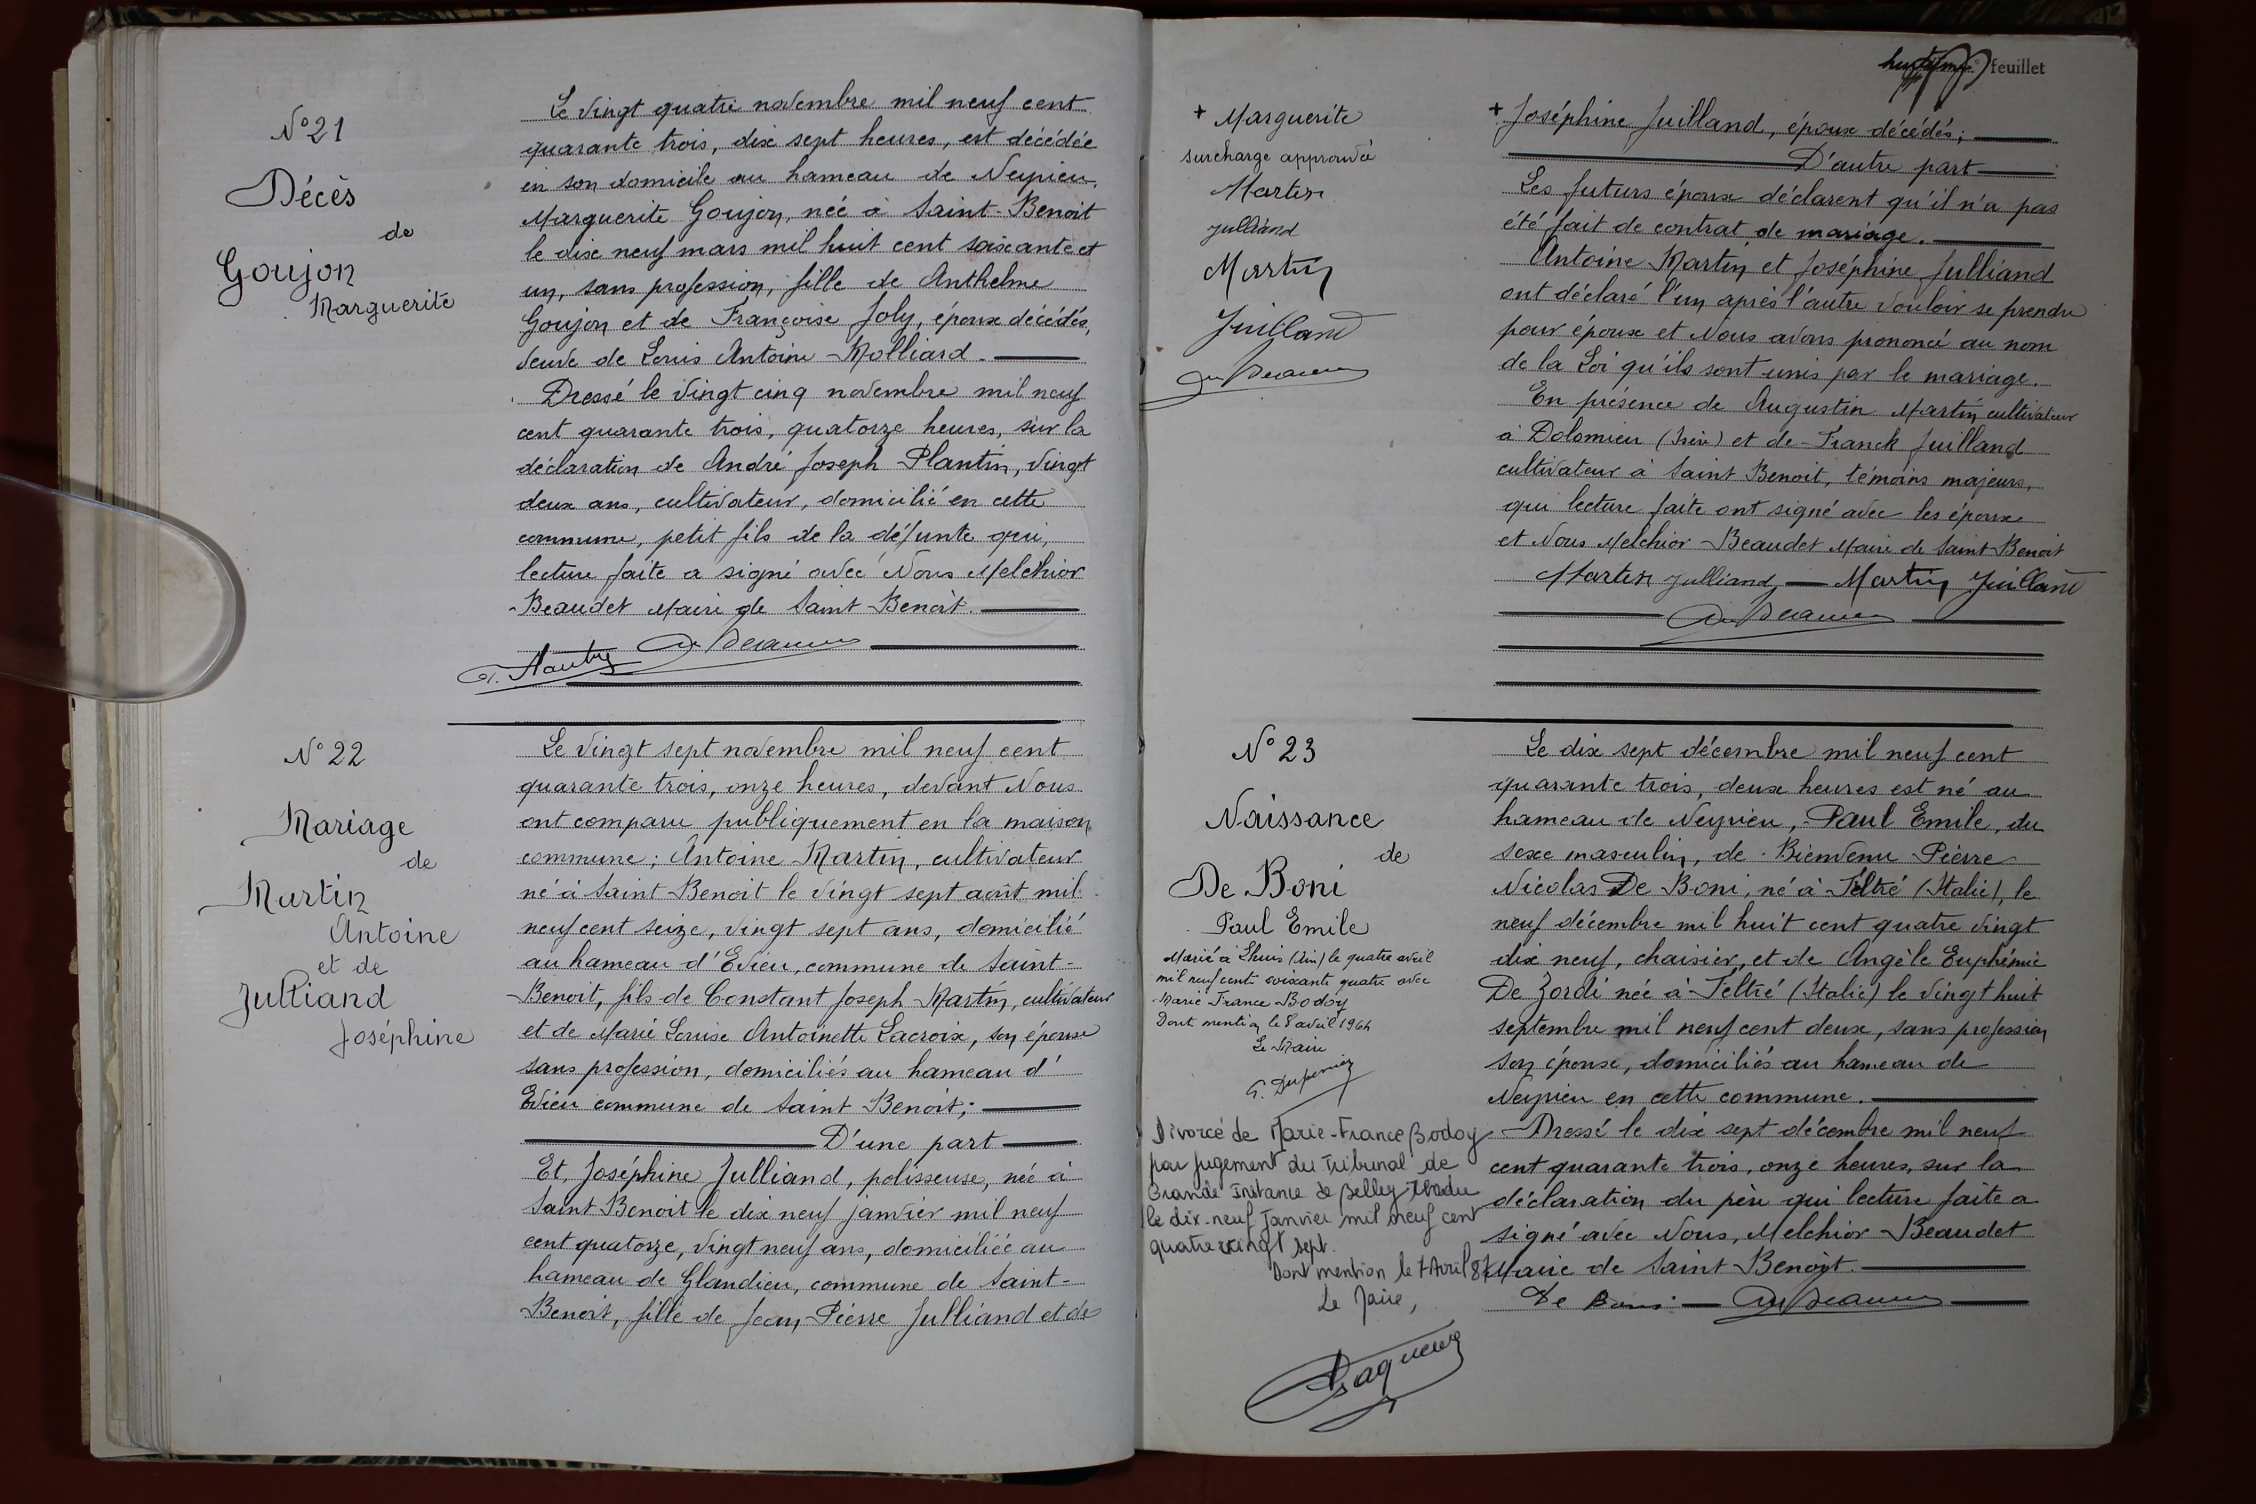 N° 21
Décès
de
Goujon
Marguerite
Le vingt quatre novembre mil neuf cent
quarante trois, dix sept heures, est décédée
en son domicile au hameau de Neyrieu,
Marguerite Goujon, née à Saint-Benoit
le dix neuf mars mil huit cent soixante et
un, sans profession, fille de Anthelme
Goujon et de Françoise Joly, époux décédés,
veuve de Louis Antoine Molliard.
Dressé le vingt cinq novembre mil neuf
cent quarante trois, quatorze heures, sur la
déclaration de André Joseph Plantin, vingt
deux ans, cultivateur, domicilié en cette
commune, petit fils de la défunte qui,
lecture faite a signé avec Nous Melchior
Beaudet Maire de Saint-Benoit.
N° 22
Mariage
de
Martin
Antoine
et de
Julliand
Joséphine
Le vingt sept novembre mil neuf cent
quarante trois, onze heures, devant Nous
ont comparu publiquement en la maison
commune; Antoine Martin, cultivateur
né à Saint Benoit le vingt sept août mil
neuf cent seize, vingt sept ans, domicilié
au hameau d'Evieu, commune de Saint-
Benoit, fils de Constant Joseph Martin, cultivateur
et de Marie Louise Antoinette Lacroix, son épouse
sans profession, domiciliés au hameau d'
Evieu commune de Saint Benoit;
D'une part
Et, Joséphine Julliand, polisseuse, née à
Saint Benoit le dix neuf janvier mil neuf
cent quatorze, vingt neuf ans, domiciliée au
hameau de Glandieu, commune de Saint-
Benoit, fille de Jean Pierre Julliand et de
feuillet
+ Marguerite
surcharge approuvée
Martin
Julliand
Martin
Juilland
+ Joséphine Juilland, époux décédés;
D'autre part
Les futurs époux déclarent qu'il n'a pas
été fait de contrat de mariage.
Antoine Martin et Joséphine Julliand
ont déclaré l'un après l'autre vouloir se prendre
pour époux et Nous avons prononcé au nom
de la Loi qu'ils sont unis par le mariage.
En présence de Augustin Martin cultivateur
à Dolomieu (Isère) et de Franck Juilland
cultivateur à Saint Benoit, témoins majeurs,
qui lecture faite ont signé avec les époux
et Nous Melchior Beaudet Maire de Saint Benoit
Martin Julliand Martin Juilland
N° 23
Naissance
de
De Boni
Paul Emile
Marié à Lhuis (Ain) le quatre avril
mil neuf cent soixante quatre avec
Marie France Bodoy
Dont mention le 8 avril 1964
Le Maire
Divorcé de Marie-France Bodoy
par jugement du Tribunal de
Grande Instance de Belley rendu
le dix-neuf Janvier mil neuf cent
quatre vingt sept.
Dont mention le 7 Avril 87
Le Maire,
Le dix sept décembre mil neuf cent
quarante trois, deux heures est né au
hameau de Neyrieu, Paul Emile, du
sexe masculin, de Bienvenu Pierre
Nicolas De Boni, né à Feltré (Italie), le
neuf décembre mil huit cent quatre vingt
dix neuf, chaisier, et de Angèle Euphémie
De Zordi née à Feltré (Italie) le vingt huit
septembre mil neuf cent deux, sans profession
son épouse, domiciliés au hameau de
Neyrieu en cette commune.
Dressé le dix sept décembre mil neuf
cent quarante trois, onze heures, sur la
déclaration du père qui lecture faite a
signé avec Nous, Melchior Beaudet
Maire de Saint Benoit.
De Boni